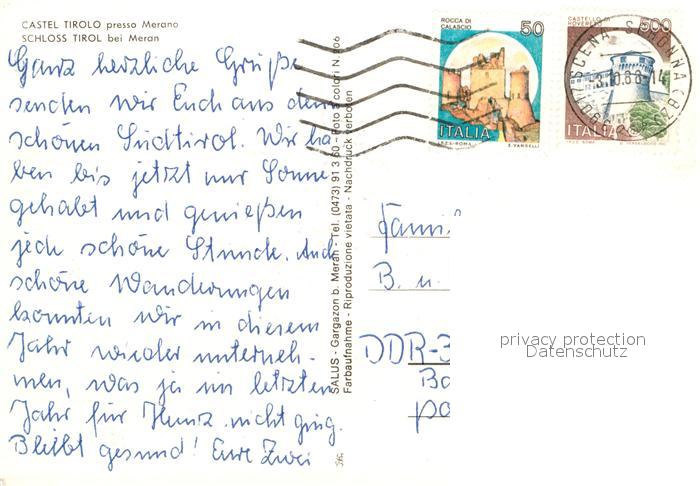 CASTEL TIROLO presso Merano
SCHLOSS TIROL bei Meran
Ganz herzliche Grüße
senden wir Euch aus dem
schönen Südtirol. Wir ha-
ben bis jetzt nur Sonne
gehabt und genießen
jede schöne Stunde. Auch
schöne Wanderungen
konnten wir in diesem
Jahr wieder unterneh-
men, was ja im letzten
Jahr für Heinz nicht ging.
Bleibt gesund! Eure Zwei
SALUS - Gargazon b. Meran - Tel. (0473) 91 3 60 - Foto a colori N. 806
Farbaufnahme - Riproduzione vietata - Nachdruck verboten
ROCCA DI
CALASCIO
50
ITALIA
I.P.Z.S.-ROMA
E. VANGELLI
CASTELLO DI
ROVERETO
500
ITALIA
SCENA SCHONNA (BZ)
Fami
B. u.
DDR-
privacy protection
Datenschutz